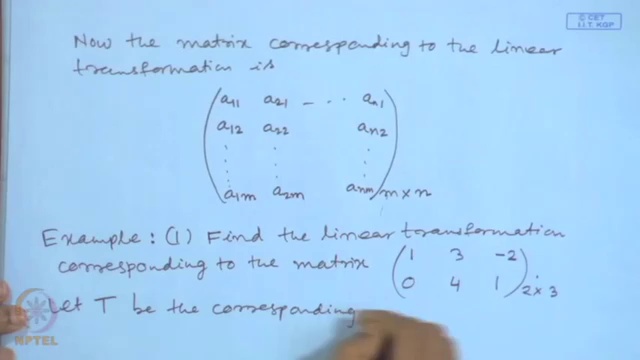 © CET
I.I.T. KGP
Now the matrix corresponding to the linear
transformation is
( a11 a21 - .. an1
a12 a22 an2
: : :
a1m a2m anm ) m×n
Example: (1) Find the linear transformation
corresponding to the matrix ( 1 3 -2
0 4 1 ) 2×3
Let T be the corresponding
NPTEL